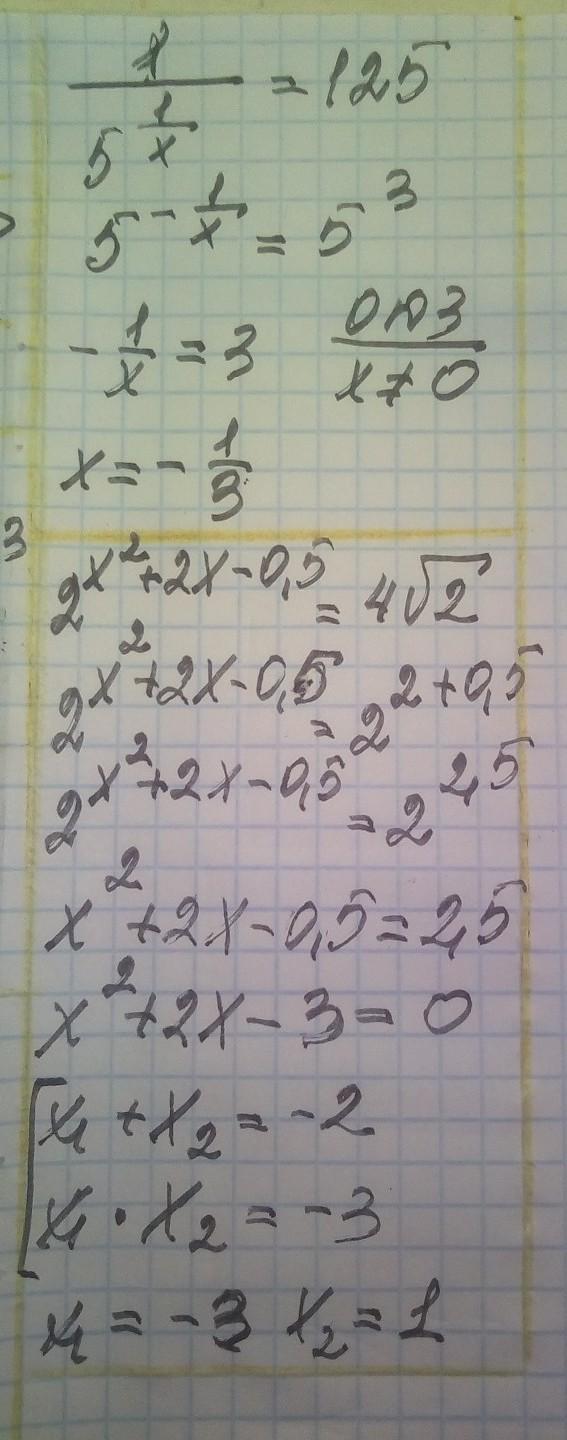 1/5^(1/x) = 125
5^(-1/x) = 5^3
-1/x = 3 ОПЗ
x ≠ 0
x = -1/3
3
2^(x^2+2x-0,5) = 4√2
2^(x^2+2x-0,5) = 2^(2+0,5)
2^(x^2+2x-0,5) = 2^(2,5)
x^2+2x-0,5=2,5
x^2+2x-3=0
[x₁+x₂=-2
x₁·x₂=-3
x₁=-3 x₂=1